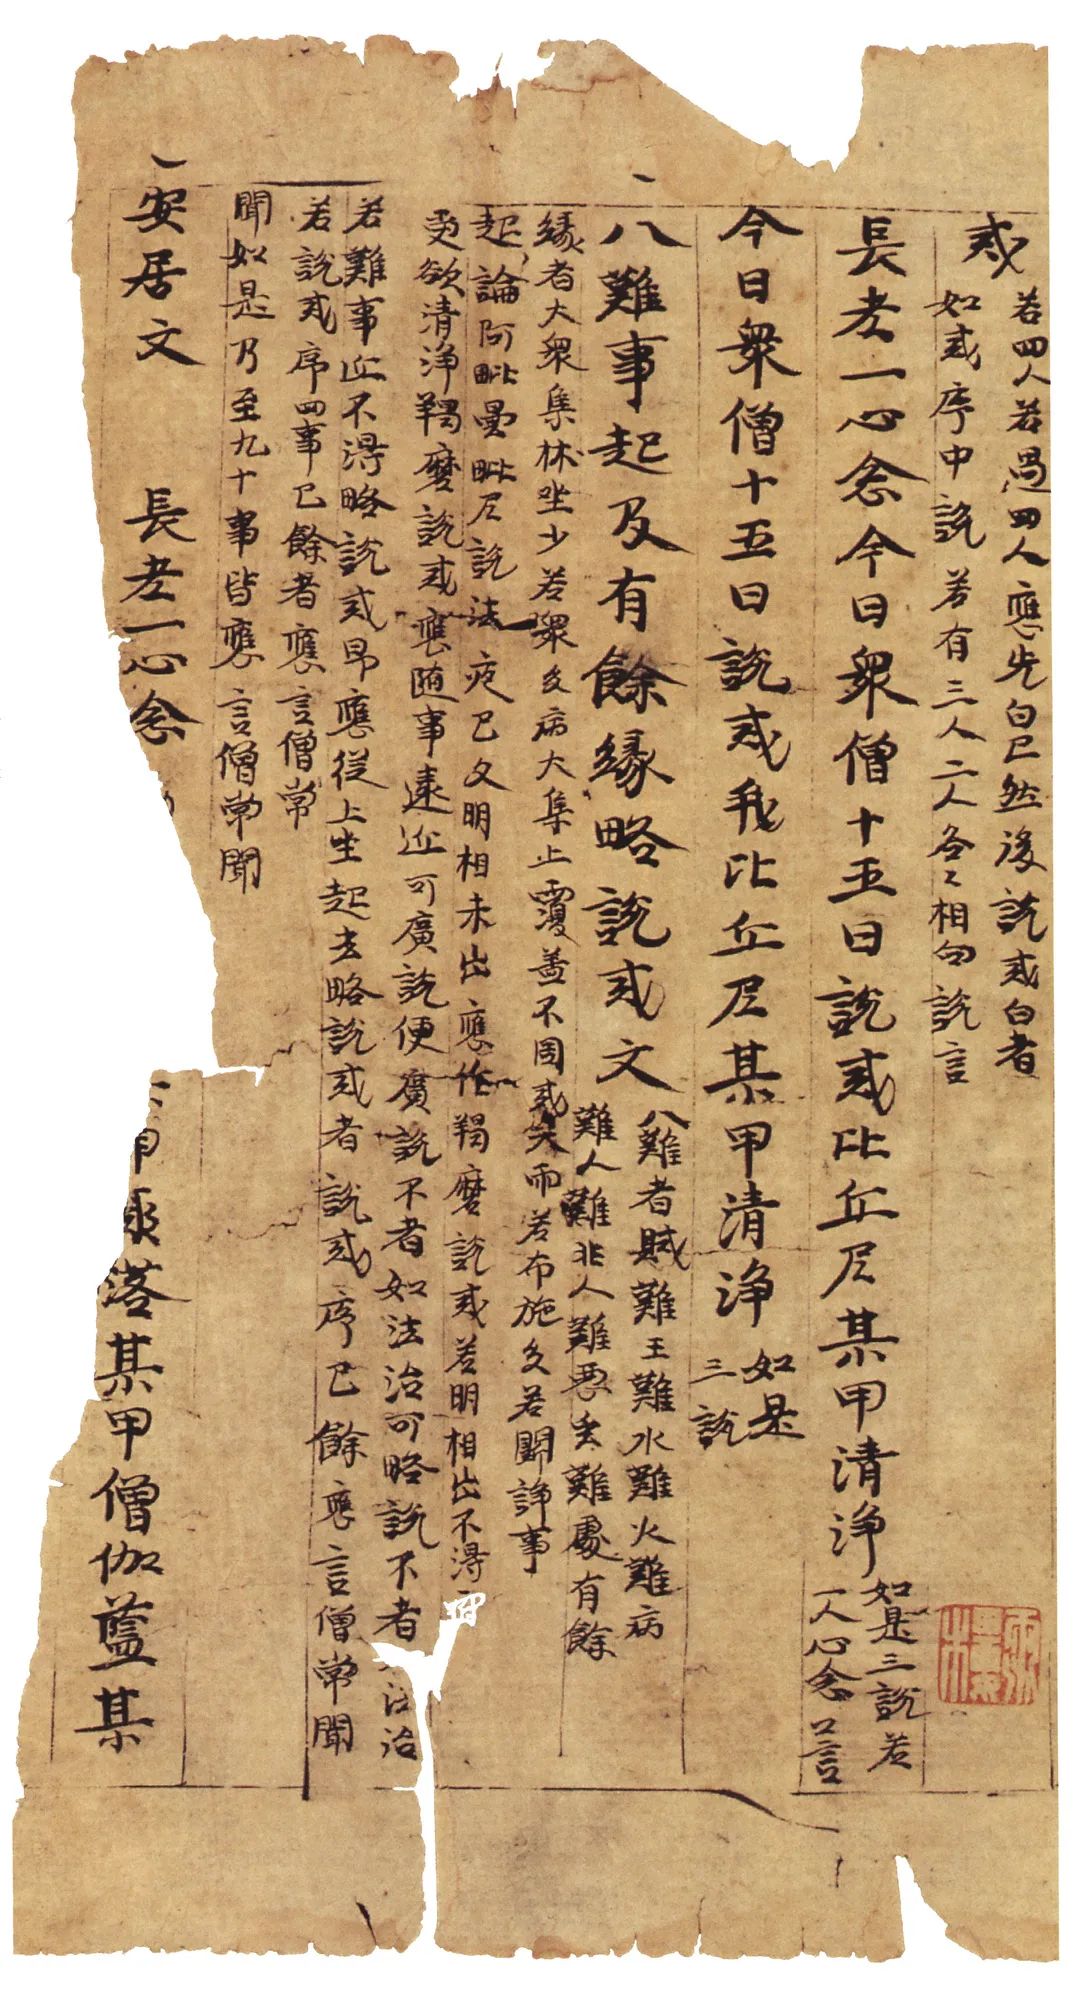 戒
若四人若過四人應先白已然後說戒白者
如戒序中說若有三人二人各々相向說言
長老一心念今日衆僧十五日說戒比丘尼某甲清淨
如是三說若
一人心念言
今日衆僧十五日說戒我比丘尼某甲清淨
如是
三說
八難事起及有餘緣略說戒文
八難者賊難王難水難火難病
難人難非人難惡虫難處有餘
緣者大衆集牀坐少若衆多病大集上覆蓋不周或天雨若布施多若鬪諍事
起論阿毗曇毗尼說法夜已久明相未出應作羯磨說戒若明相出不得
更欲清淨羯磨說戒應隨事遠近可廣說便廣說不者如法治可略說不者法治
若難事近不得略說戒即應從上坐起去略說戒者說戒序已餘應言僧常聞
若說戒序四事已餘者應言僧常
聞如是乃至九十事皆應言僧常聞
安居文 長老一心念
落某甲僧伽藍某